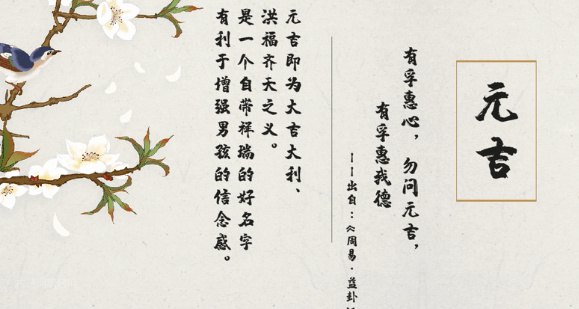 元吉
有孚惠心，勿问元吉，
有孚惠我德
——出自：《周易·益卦
元吉即为大吉大利、
洪福齐天之义。
是一个自带祥瑞的好名字
有利于增强男孩的信念感。